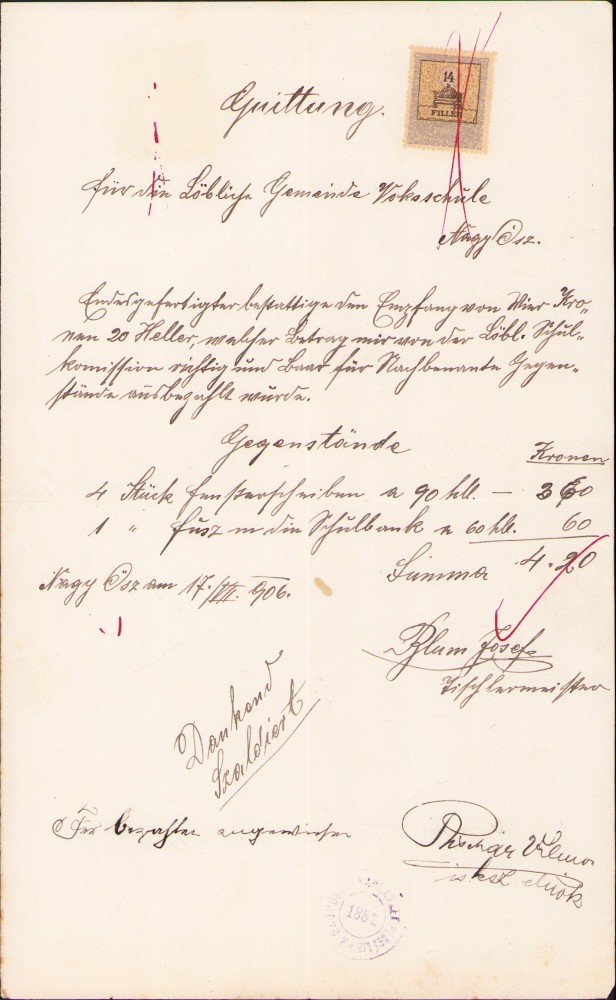 14
FILLÉR
Quittung.
für die Löbliche Gemeinde Voksschule
Nagy Ősz.
Endesgefertigter bestattige den Empfang von Vier Kro-
nen 20 Heller, welcher Betrag mir von der Löbl. Schul-
komission richtig und Baar für Nachbenante Gegen-
stände ausbezahlt wurde.
Gegenstände
Kronen
4 Stück Fensterscheiben a 90 hll. — 3 60
1 " Fusz in die Schulbank a 60 hll. 60
Summa 4.20
Nagy Ősz am 17./VII. 906.
Blum Josef
Tischlermeister
Dankend
Szaldiert
Für bezahlen angewiesen
Vilmos
isk. sz. elnök
188